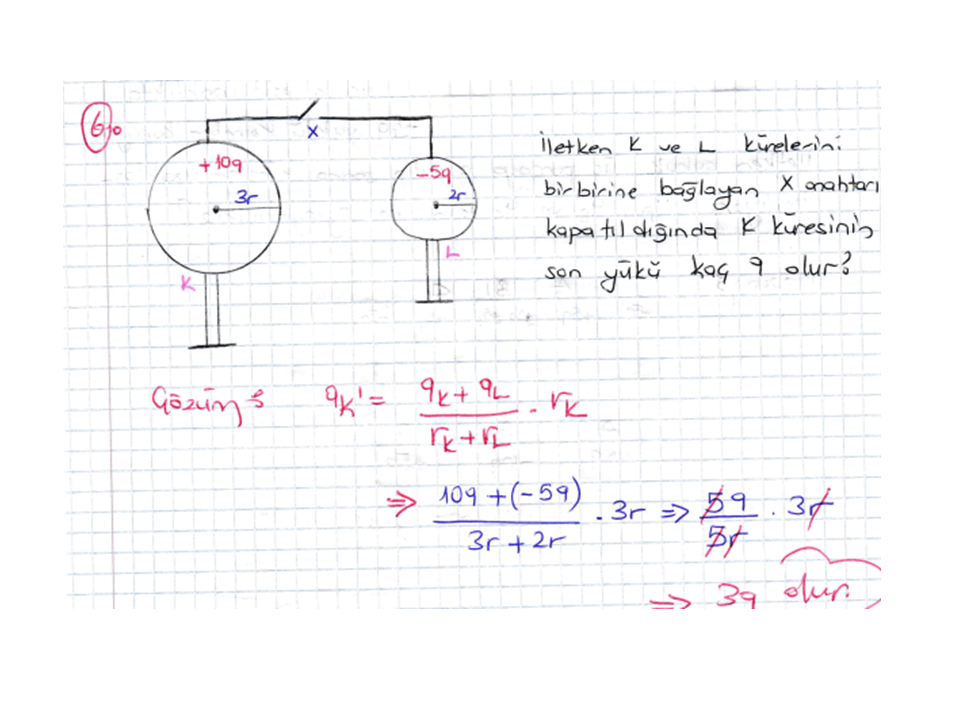 6)
X
+10q
3r
K
-5q
2r
L
İletken K ve L kürelerini
birbirine bağlayan X anahtarı
kapatıldığında K küresinin
son yükü kaç q olur?
Çözüm: qK' = (qK + qL)/(rK + rL) . rK
⇒ (10q + (-5q))/(3r + 2r) . 3r ⇒ 5q/5r . 3r
⇒ 3q olur.